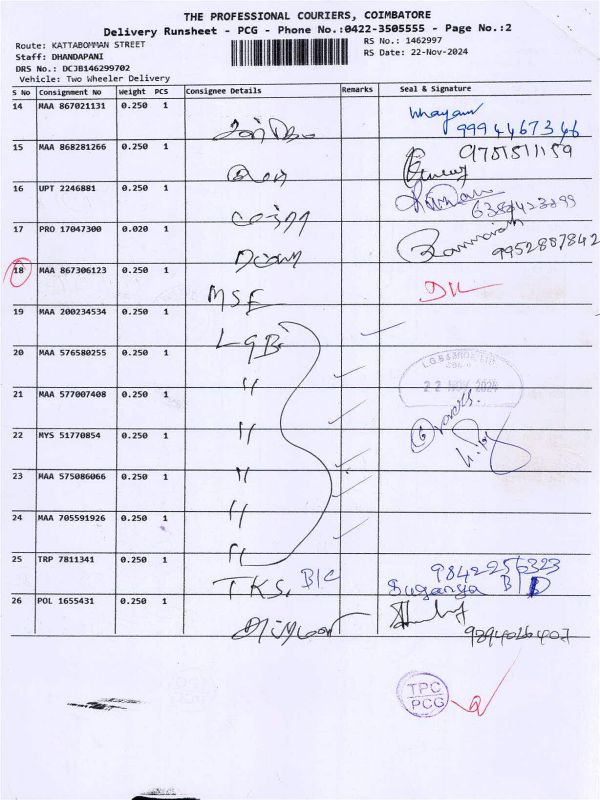 THE PROFESSIONAL COURIERS, COIMBATORE
Delivery Runsheet - PCG - Phone No.:0422-3505555 - Page No.:2
Route: KATTABOMMAN STREET
RS No.: 1462997
Staff: DHANDAPANI
RS Date: 22-Nov-2024
DRS No.: DCJB146299702
Vehicle: Two Wheeler Delivery
S No Consignment No Weight PCS Consignee Details Remarks Seal & Signature
14 MAA 867021131 0.250 1
9994467346
15 MAA 868281266 0.250 1 9751511159
16 UPT 2246881 0.250 1
17 PRO 17047300 0.020 1
9952887842
18 MAA 867306123 0.250 1
MSE
19 MAA 200234534 0.250 1
LGB
20 MAA 576580255 0.250 1
"
22 NOV 2024
21 MAA 577007408 0.250 1
"
22 MYS 51770854 0.250 1
"
23 MAA 575086066 0.250 1
"
24 MAA 705591926 0.250 1
"
25 TRP 7811341 0.250 1 9842256323
TKS. B/C Suganya B/
26 POL 1655431 0.250 1
TPC
PCG